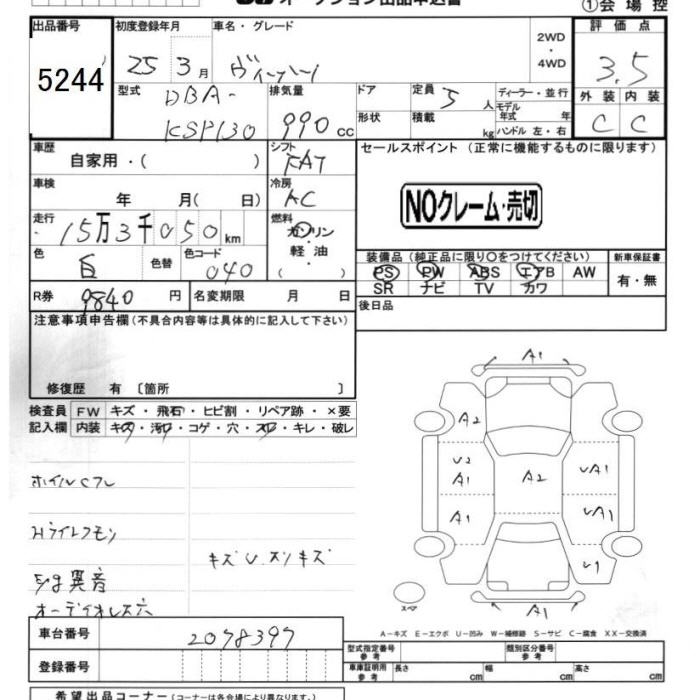 オークション出品申込書
①会場控
出品番号 初度登録年月 車名・グレード 2WD 評価点
5244 25 3月 ヴィッツ ・ 3.5
4WD
型式 DBA- 排気量 ドア 定員 5人 ディーラー・並行 外装 内装
KSP130 990cc 形状 積載 kg モデル年式 年 C C
ハンドル 左・右
車歴 自家用・( ) シフト FAT セールスポイント (正常に機能するものに限ります)
車検 年 月( 日) 冷房 AC NOクレーム・売切
走行 15万3千050km 燃料 ガソリン・軽油
( )
色 白 色替 色コード 040 装備品 (純正品に限り○をつけてください) 新車保証書
PS PW ABS エアB AW 有・無
SR ナビ TV カワ
R券 9840円 名変期限 月 日 後日品
注意事項申告欄(不具合内容等は具体的に記入して下さい)
修復歴 有 〔箇所 〕
検査員 FW キズ・飛石・ヒビ割・リペア跡・×要
記入欄 内装 キズ・汚れ・コゲ・穴・スレ・キレ・破レ
A1
A2
U2
A1 A2 UA1
A1 UA1
U1
A1
スペア
ホイルCフレ
Hライトクモリ
キズU.スリキズ
E/g異音
オーディオレス穴
A-キズ E-エクボ U-凹み W-補修跡 S-サビ C-腐食 XX-交換済
車台番号 2078397
型式指定番号 参考 類別区分番号 参考
登録番号 車庫証明用 参考 長さ cm 幅 cm 高さ cm
希望出品コーナー(コーナーは各会場により異なります。)